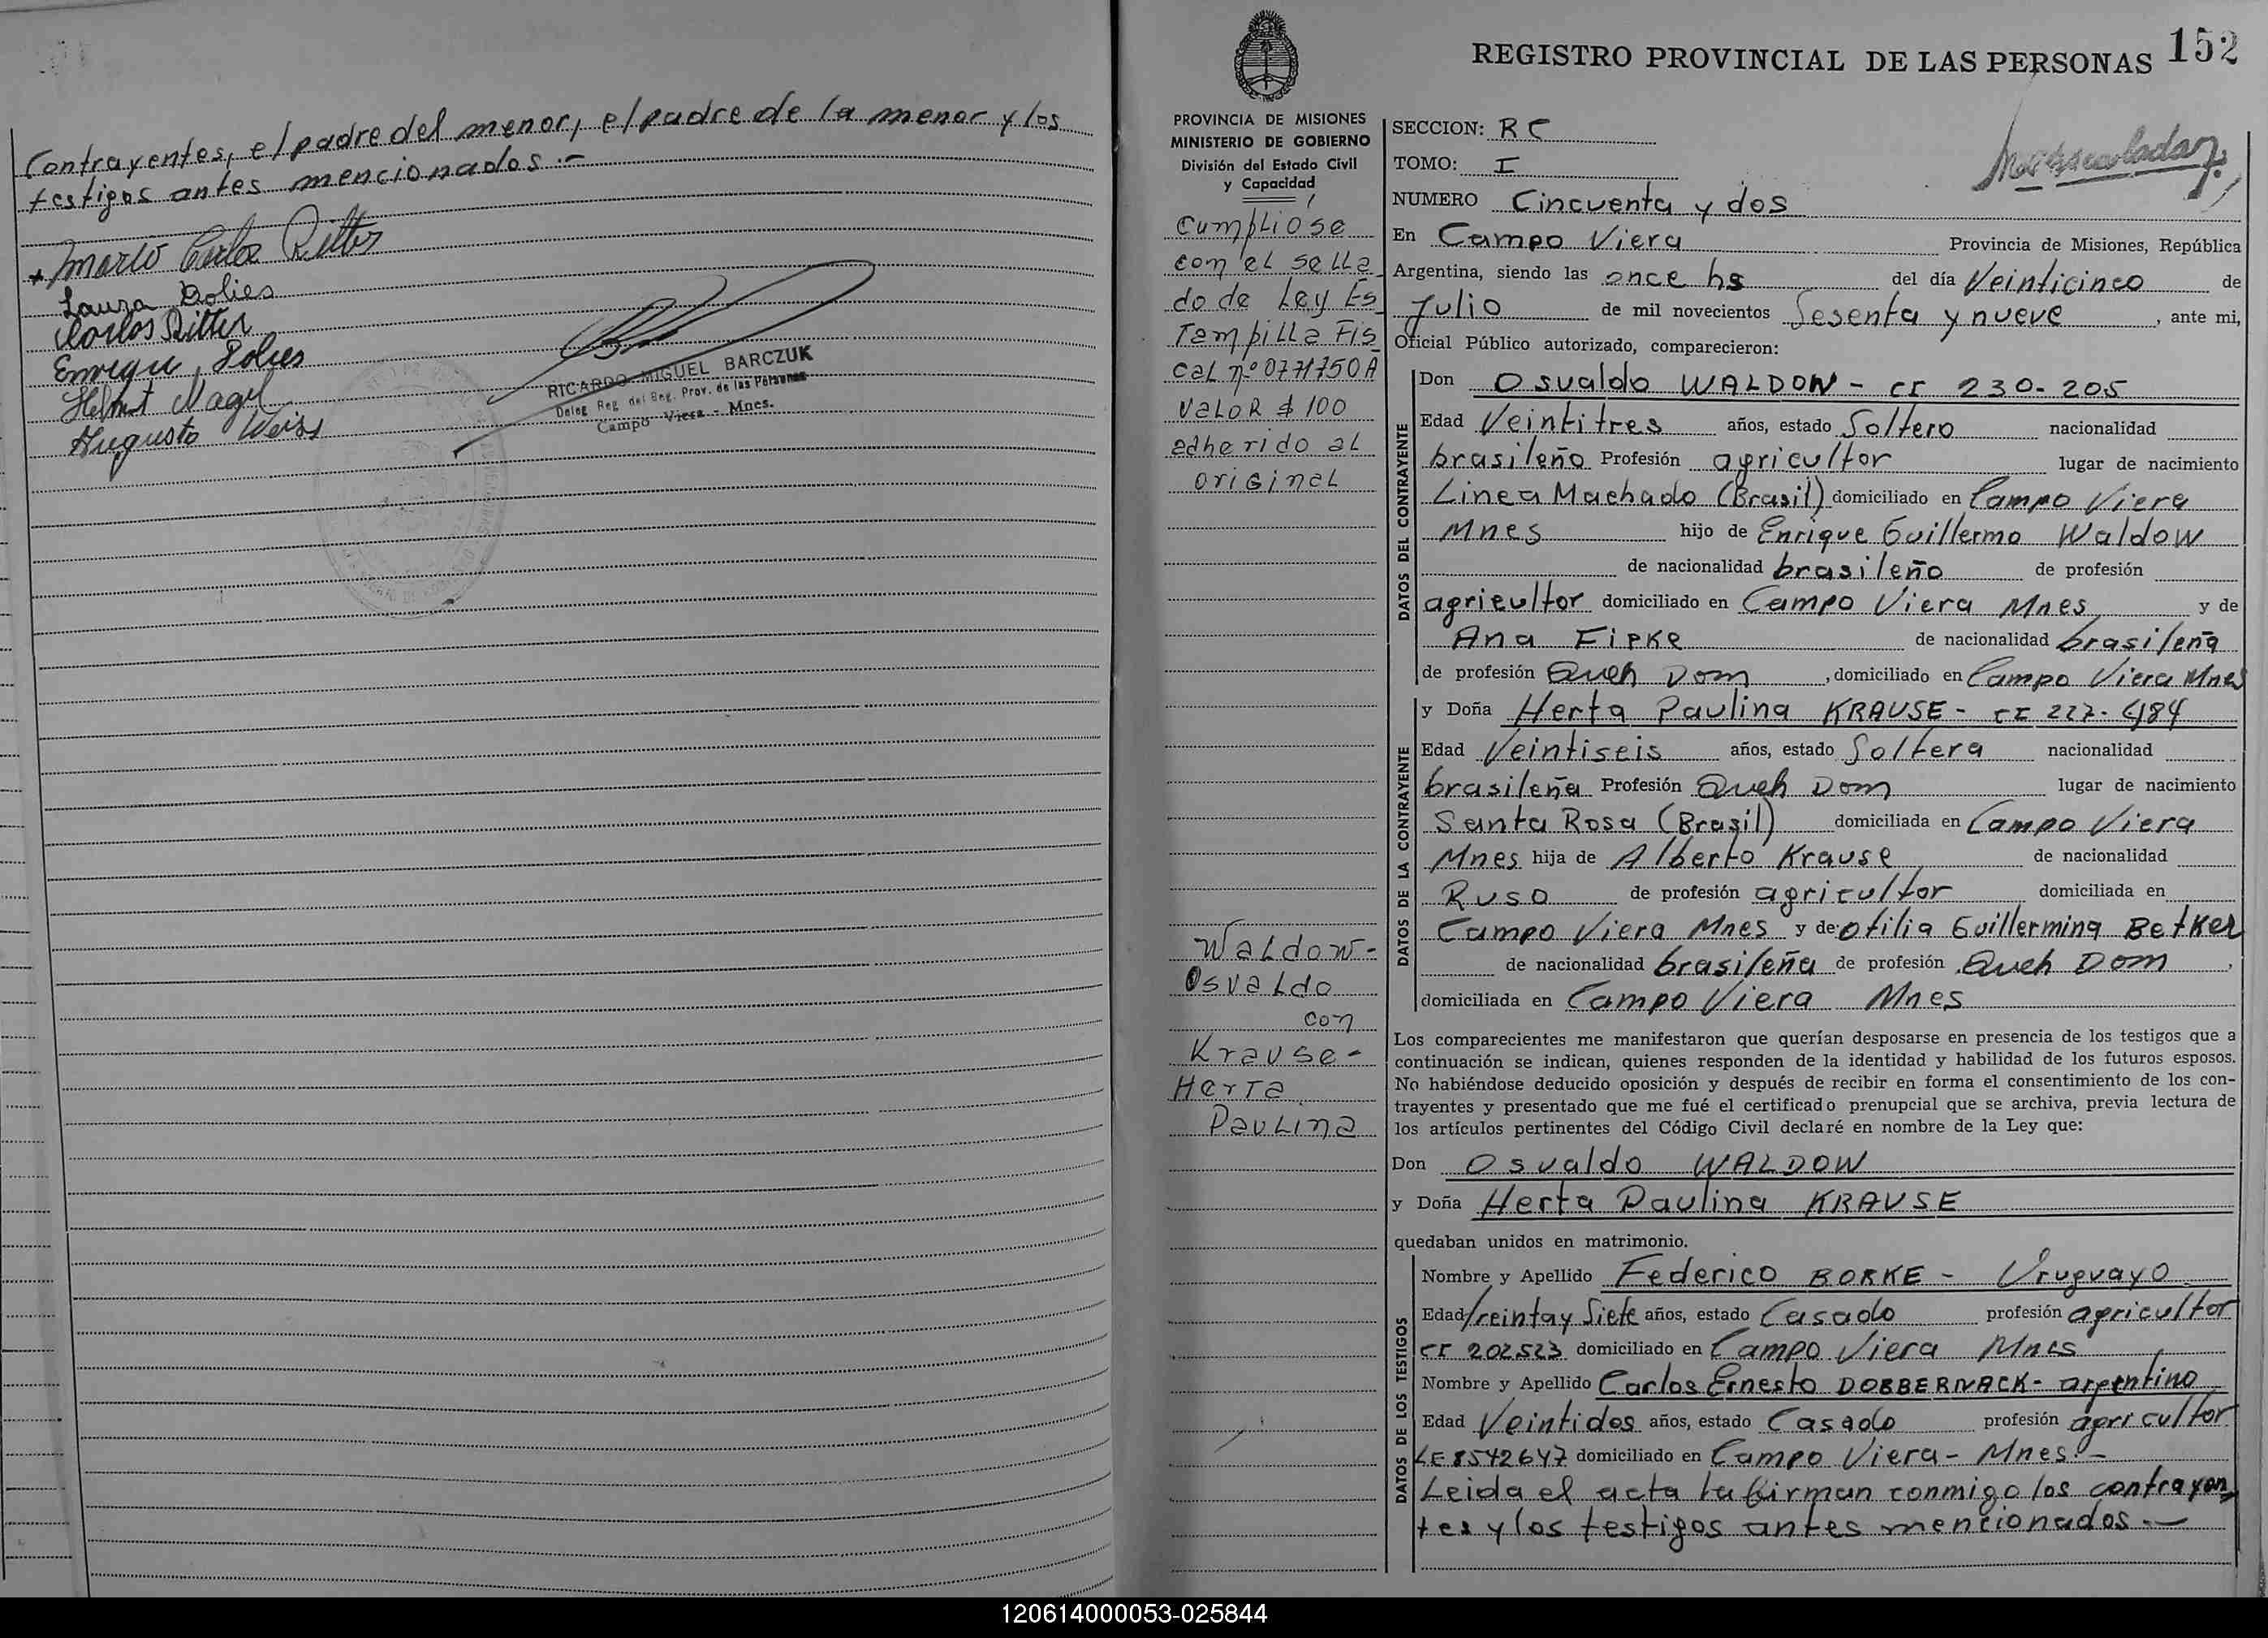 Contrayentes, el padre del menor, el padre de la menor y los
testigos antes mencionados.-
+ Mario Carlos Ritter
Laura Dolies
Carlos Ritter
Enrique Dolies
Helmut Nagel
Augusto Weiss
RICARDO MIGUEL BARCZUK
Deleg Reg. del Reg. Prov. de las Personas
Campo Viera - Mnes.
REGISTRO PROVINCIAL DE LAS PERSONAS 152
PROVINCIA DE MISIONES
MINISTERIO DE GOBIERNO
División del Estado Civil
y Capacidad
Cumpliose
con el sella
do de Ley Es
Tampilla Fis
cal nº 0771750A
Valor $ 100
adherido al
original
Waldow-
Osvaldo
con
Krause-
Herta
Paulina
SECCION: RC
TOMO: I
NUMERO Cincuenta y dos
En Campo Viera Provincia de Misiones, República
Argentina, siendo las once hs del día Veinticinco de
Julio de mil novecientos Sesenta y nueve, ante mi,
Oficial Público autorizado, comparecieron:
DATOS DEL CONTRAYENTE
Don Osvaldo WALDOW - CI 230-205
Edad Veintitres años, estado Soltero nacionalidad
brasileño Profesión agricultor lugar de nacimiento
Linea Machado (Brasil) domiciliado en Campo Viera
Mnes hijo de Enrique Guillermo Waldow
de nacionalidad brasileño de profesión
agricultor domiciliado en Campo Viera Mnes y de
Ana Fipke de nacionalidad brasileña
de profesión Queh Dom, domiciliado en Campo Viera Mnes
DATOS DE LA CONTRAYENTE
y Doña Herta Paulina KRAUSE - CI 227-484
Edad Veintiseis años, estado Soltera nacionalidad
brasileña Profesión Queh Dom lugar de nacimiento
Santa Rosa (Brasil) domiciliada en Campo Viera
Mnes hija de Alberto Krause de nacionalidad
Ruso de profesión agricultor domiciliada en
Campo Viera Mnes y de Otilia Guillermina Betker
de nacionalidad brasileña de profesión Queh Dom,
domiciliada en Campo Viera Mnes
Los comparecientes me manifestaron que querían desposarse en presencia de los testigos que a
continuación se indican, quienes responden de la identidad y habilidad de los futuros esposos.
No habiéndose deducido oposición y después de recibir en forma el consentimiento de los con-
trayentes y presentado que me fué el certificado prenupcial que se archiva, previa lectura de
los artículos pertinentes del Código Civil declaré en nombre de la Ley que:
Don Osvaldo WALDOW
y Doña Herta Paulina KRAUSE
quedaban unidos en matrimonio.
DATOS DE LOS TESTIGOS
Nombre y Apellido Federico BORKE - Uruguayo
Edad treinta y Siete años, estado Casado profesión agricultor
CI 202523 domiciliado en Campo Viera Mnes
Nombre y Apellido Carlos Ernesto DOBBERNACK - argentino
Edad Veintidos años, estado Casado profesión agricultor
LE 8542647 domiciliado en Campo Viera - Mnes.-
Leida el acta la firman conmigo los contrayen
tes y los testigos antes mencionados.-
120614000053-025844